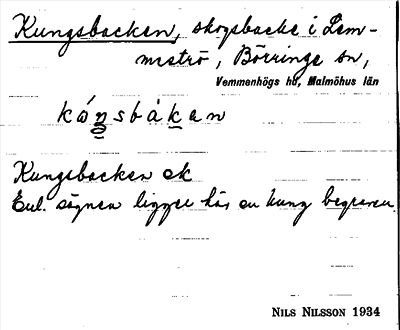 Kungsbacken, skogsbacke i Lem-
meströ, Börringe sn,
Vemmenhögs hd, Malmöhus län
kóŋsbàkan
Kungsbacken ek
Enl. sägnen ligger här en kung begraven.
NILS NILSSON 1934